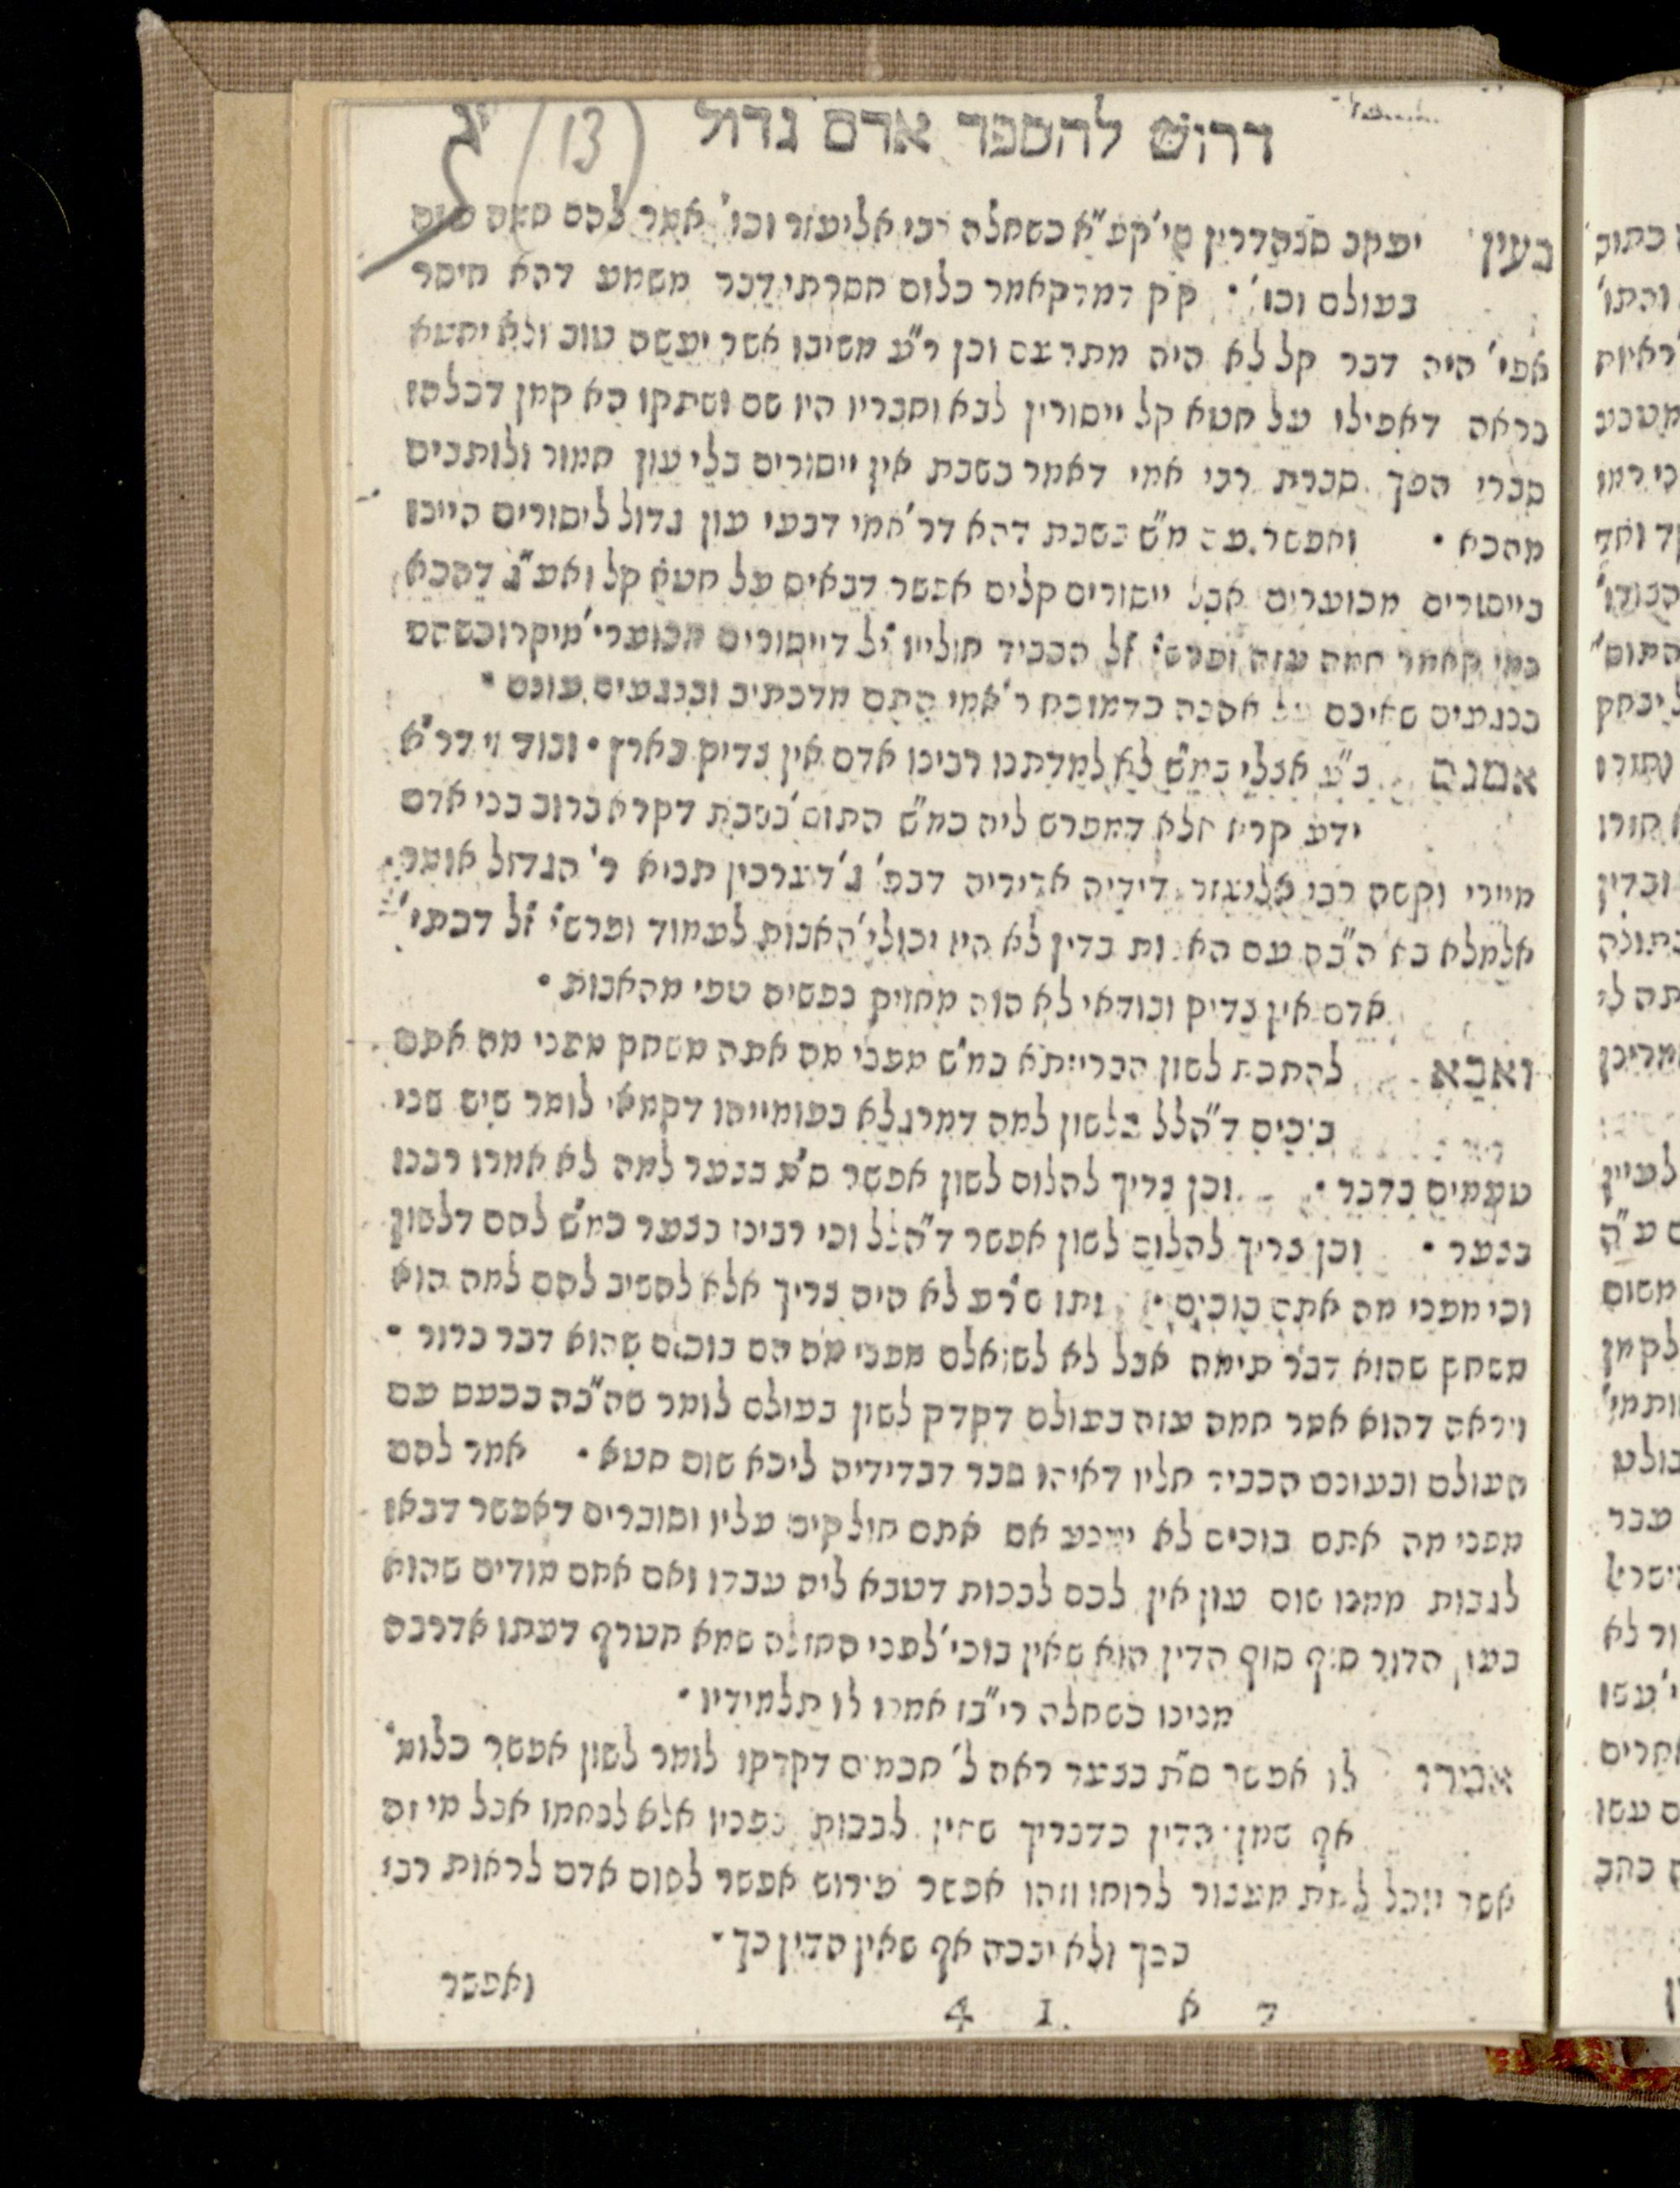 דרוש להספד אדם גדול (13) יג
בעין יעקב סנהדרין סי' קע"א כשחלה רבי אליעזר וכו' אמר להם חמה עזה
בעולם וכו' • ק"ק דמדקאמר כלום חסרתי דבר משמע דהא חיסר
אפי' היה דבר קל לא היה מתרעם וכן ר"ע משיבו אשר יעשה טוב ולא יחטא
נראה דאפילו על חטא קל ייסורין לבא וחבריו היו שם ושתקו הא קמן דכלהו
סברי הפך סברת רבי אמי דאמר בשבת אין ייסורים בלי עון חמור ולותבים
מהכא • ואפשר עם מ"ש בשבת דהא דר' אמי דבעי עון גדול ליסורים היינו
בייסורים מכוערים אבל ייסורים קלים אפשר דבאים על חטא קל ואע"ג דהכא
נמי קאמר חמה עזה ופרש"י ז"ל הכביד חולייו י"ל דייסורים מכוערי' מיקרו כשהם
בנגעים שאינם על אהבה כדמוכח ר' אמי התם מדכתיב ובנגעים עונם •
אמנם ב"ע אצלי במ"ש לא למדתנו רבינו אדם אין צדיק בארץ • ובודאי דר"א
ידע קרא אלא דמפרש ליה כמ"ש התוס' בשבת דקרא ברוב בני אדם
מיירי וקשה רבי אליעזר דידיה אדידיה דבפ' ג' דערכין תניא ר' הגדול אומר
אלמלא בא ה"בה עם האבות בדין לא היו יכולי' האבות לעמוד ופרש"י ז"ל דכתי'
אדם אין צדיק ובודאי לא הוה מחזיק נפשיה טפי מהאבות •
ואבא להתכת לשון הברייתא במ"ש מפני מה אתה משחק מפני מה אתם
בוכים ד"הלל בלשון למה דמרגלא בפומייהו דקמאי לומר שיש שני
טעמים בדבר • וכן צריך להלום לשון אפשר ס"ת בצער למה לא אמרו רבנו
בצער • וכן צריך להלום לשון אפשר ד"הלל וכי רבינו בצער כמ"ש להם דלשון
וכי מפני מה אתם בוכים • ותו שר"ע לא היה צריך אלא להשיב להם למה הוא
משחק שהוא דבר תימה אבל לא לשואלם מפני מה הם בוכים שהוא דבר ברור •
ויראה דהוא אמר חמה עזה בעולם דקדק לשון בעולם לומר שה"בה בכעס עם
העולם ובעונם הכביד חליו דאיהו סבר דבדידיה ליכא שום חטא • אמר להם
מפני מה אתם בוכים לא ימנע אם אתם חולקים עליו וסוברים דאפשר דבאו
לגבות ממנו שום עון אין לכם לבכות דטבא ליה עבדו ואם אתם מודים שהוא
בעון הדור סוף סוף הדין הוא שאין בוכי' לפני החולה שמא תטרף דעתו אדרבה
מנינו כשחלה רי"בז אמרו לו תלמידיו •
אמרו לו אפשר ס"ת בצער ראה ל' חכמים דקדקו לומר לשון אפשר כלומ'
אף שמן הדין כדבריך שאין לבכות בפניו אלא לנחמו אבל מי זה
אשר יוכל לתת מעצור לרוחו וזהו אפשר פירוש אפשר לשום אדם לראות רבי
בכך ולא יבכה אף שאין הדין כך •
ואפשר
ד א 1 4